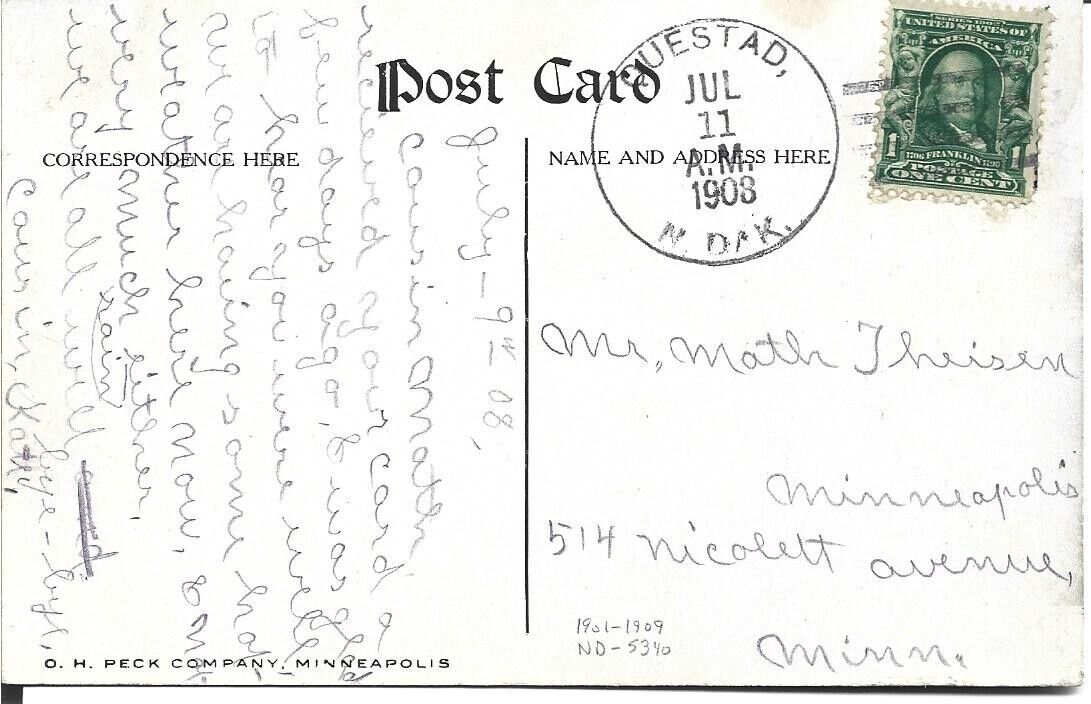 Post Card
CORRESPONDENCE HERE
NAME AND ADDRESS HERE
QUESTAD,
JUL
11
A.M.
1908
N. DAK.
SERIES 1902
UNITED STATES OF
AMERICA
1706 FRANKLIN 1790
1 1
POSTAGE
ONE CENT
July - 9th 08,
Cousin Math
received your card a
few days ago, & was glad
to hear you were well
we are having some hot
weather here now, & not
very much rain either.
we are all well
bye-bye,
Cousin, Kath,
Mr, Math Theisen
Minneapolis
514 nicolett avenue,
Minn.
1901-1909
ND-5340
O. H. PECK COMPANY, MINNEAPOLIS